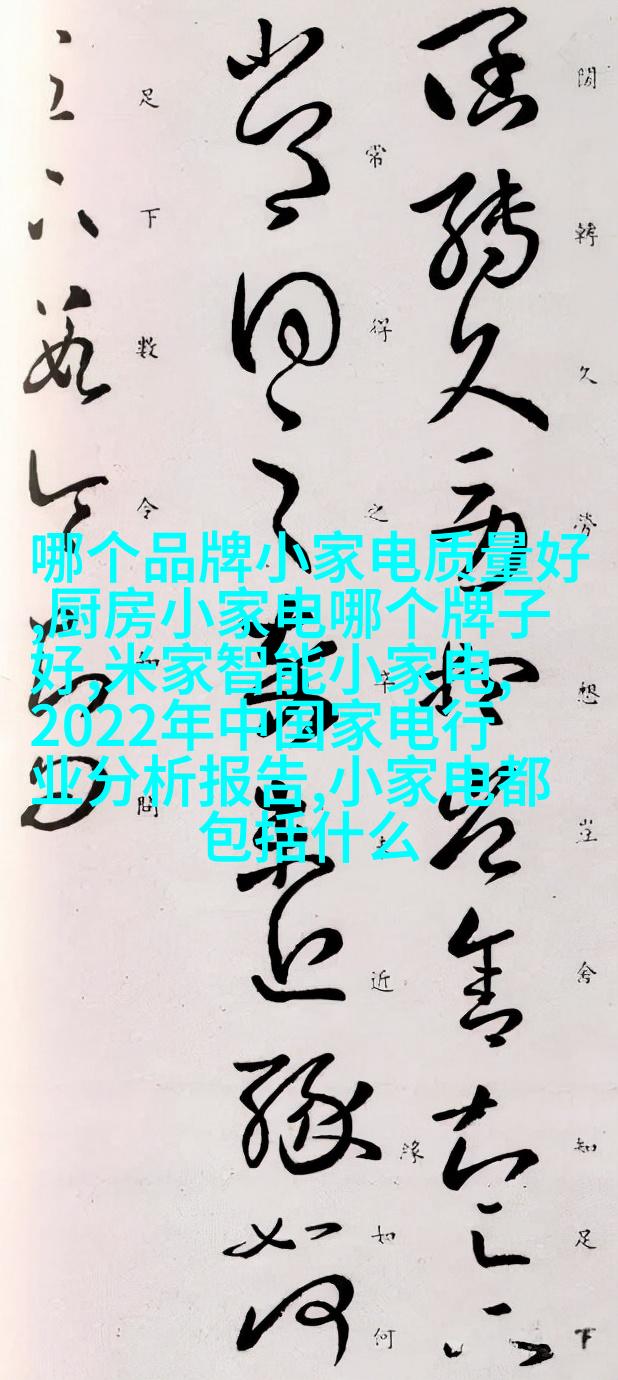 哪个品牌小家电质量好
,厨房小家电哪个牌子
好,米家智能小家电,
2022年中国家电行
业分析报告,小家电都
包括什么
轉久勞想豈舍知足下
常得之近緣如何
足下數令問